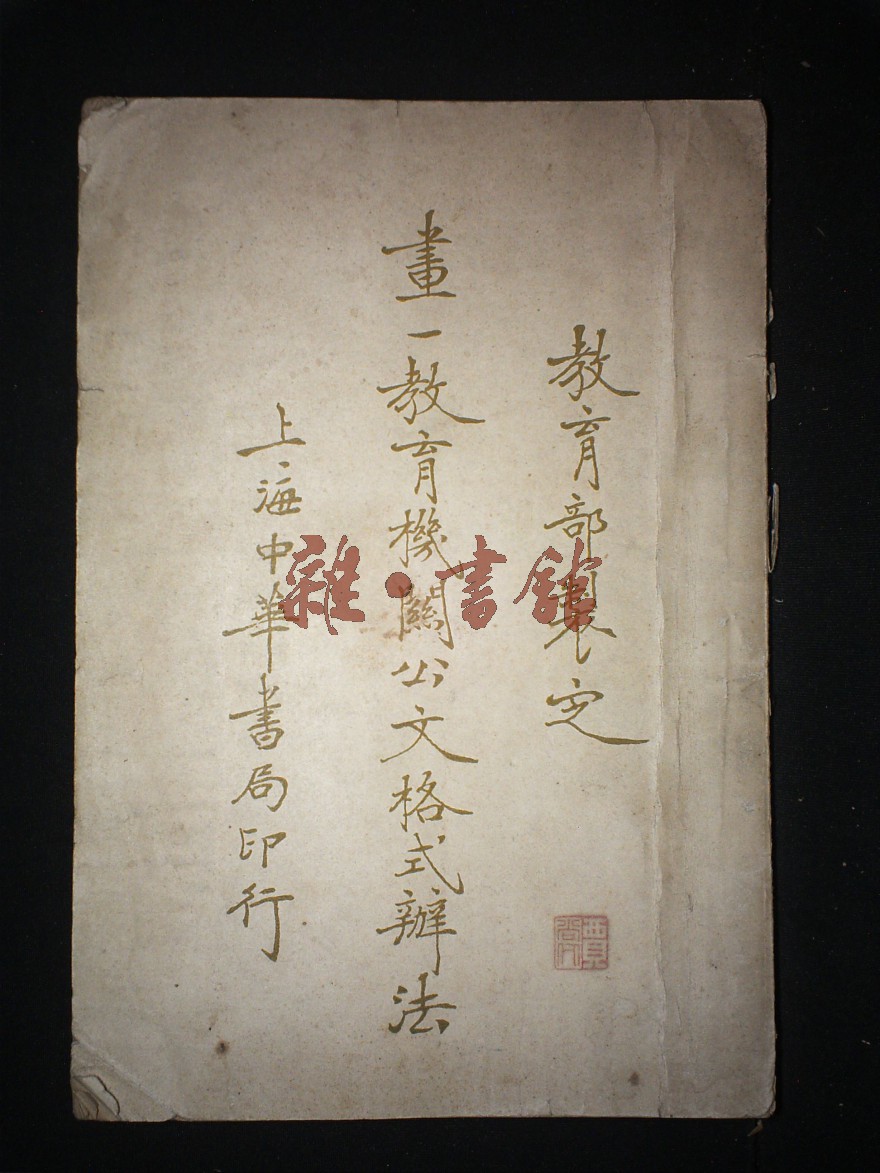 教育部製定
畫一教育機關公文格式辦法
上海中華書局印行
雜·書館